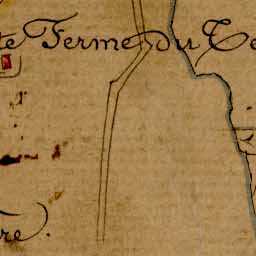 te Ferme du Te
re).